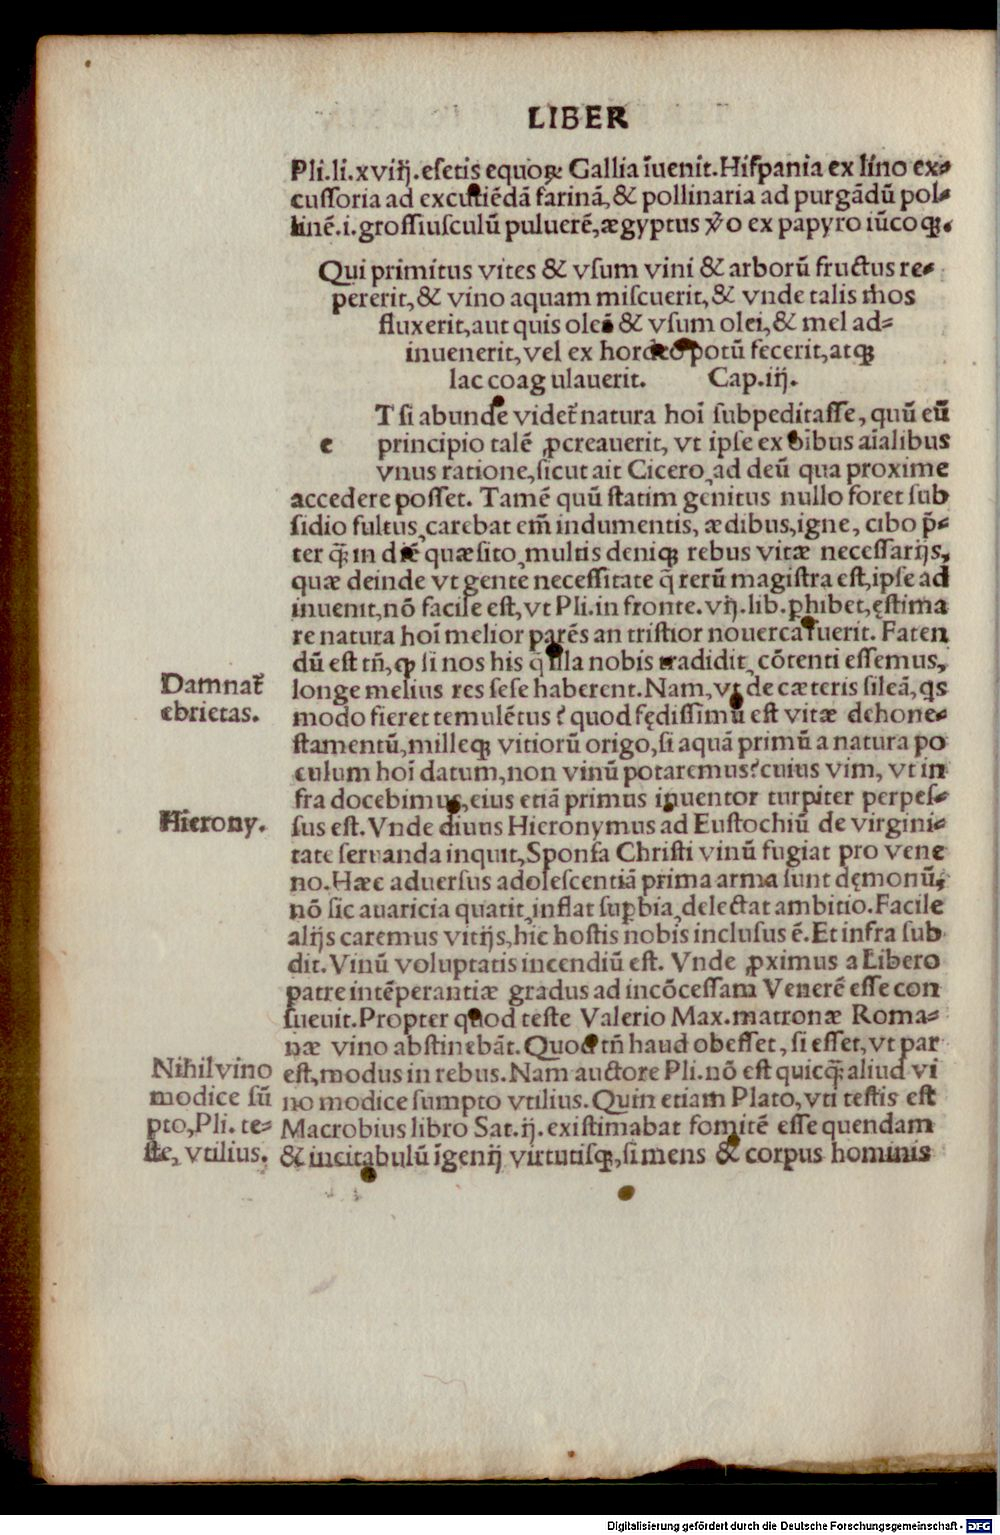 LIBER
Pli.li.xviij.eſetis equoꝝ Gallia īuenit.Hiſpania ex lino ex-
cuſſoria ad excutiēdā farinā,& pollinaria ad purgādū pol-
linē.i.groſſiusculū puluerē,ægyptus ꝟo ex papyro iūcoqꝫ.
Qui primitus vites & vſum vini & arborū fructus re-
pererit,& vino aquam miſcuerit,& vnde talis mos
fluxerit,aut quis oleā & vſum olei,& mel ad-
inuenerit,vel ex hordeo potū fecerit,atqꝫ
lac coagulauerit. Cap.iij.
T ſi abunde videt̄ natura hoī ſubpeditaſſe, quū eū
e principio talē ꝓcreauerit, vt ipſe ex oībus aīalibus
vnus ratione,ſicut ait Cicero,ad deū qua proxime
accedere poſſet. Tamē quū ſtatim genitus nullo foret ſub
ſidio fultus,carebat em̄ indumentis, ædibus,igne, cibo p̄-
ter q̄ꝫ in diē quæſito,multis deniqꝫ rebus vitæ neceſſarijs,
quæ deinde vt gente neceſſitate q̄ rerū magiſtra eſt,ipſe ad
inuenit,nō facile eſt,vt Pli.in fronte.vij.lib.ꝑhibet,ęſtima
re natura hoī melior parēs an triſtior nouerca fuerit. Faten
dū eſt tn̄,ꝙ ſi nos his q̄ illa nobis tradidit,cōtenti eſſemus,
Damnat̄ longe melius res ſeſe haberent.Nam,vt de cæteris ſileā,q̇s
ebrietas. modo fieret temulētus? quod fędiſſimū eſt vitæ dehone-
ſtamentū,milleqꝫ vitiorū origo,ſi aquā primū a natura po
culum hoī datum,non vinū potaremus?cuius vim, vt in
fra docebimus,eius etiā primus inuentor turpiter perpeſ-
Hierony. ſus eſt.Vnde diuus Hieronymus ad Euſtochiū de virgini-
tate ſeruanda inquit,Sponſa Chriſti vinū fugiat pro vene
no.Hæc aduerſus adoleſcentiā prima arma ſunt dęmonū,
nō ſic auaricia quatit,inflat ſuꝑbia,delectat ambitio.Facile
alijs caremus vitijs,hic hoſtis nobis incluſus ē.Et infra ſub
dit.Vinū voluptatis incendiū eſt. Vnde ꝓximus a Libero
patre intēperantiæ gradus ad incōceſſam Venerē eſſe con
ſueuit.Propter quod teſte Valerio Max.matronæ Roma-
næ vino abſtinebāt.Quod tn̄ haud obeſſet, ſi eſſet, vt par
Nihil vino eſt,modus in rebus.Nam auctore Pli.nō eſt quicq̄ꝫ aliud vi
modice ſū no modice ſumpto vtilius.Quin etiam Plato,vti teſtis eſt
pto,Pli. te- Macrobius libro Sat.ij.exiſtimabat fomitē eſſe quendam
ſte, vtilius. & incitabulū īgenij virtutiſqꝫ,ſi mens & corpus hominis
Digitalisierung gefördert durch die Deutsche Forschungsgemeinschaft - DFG